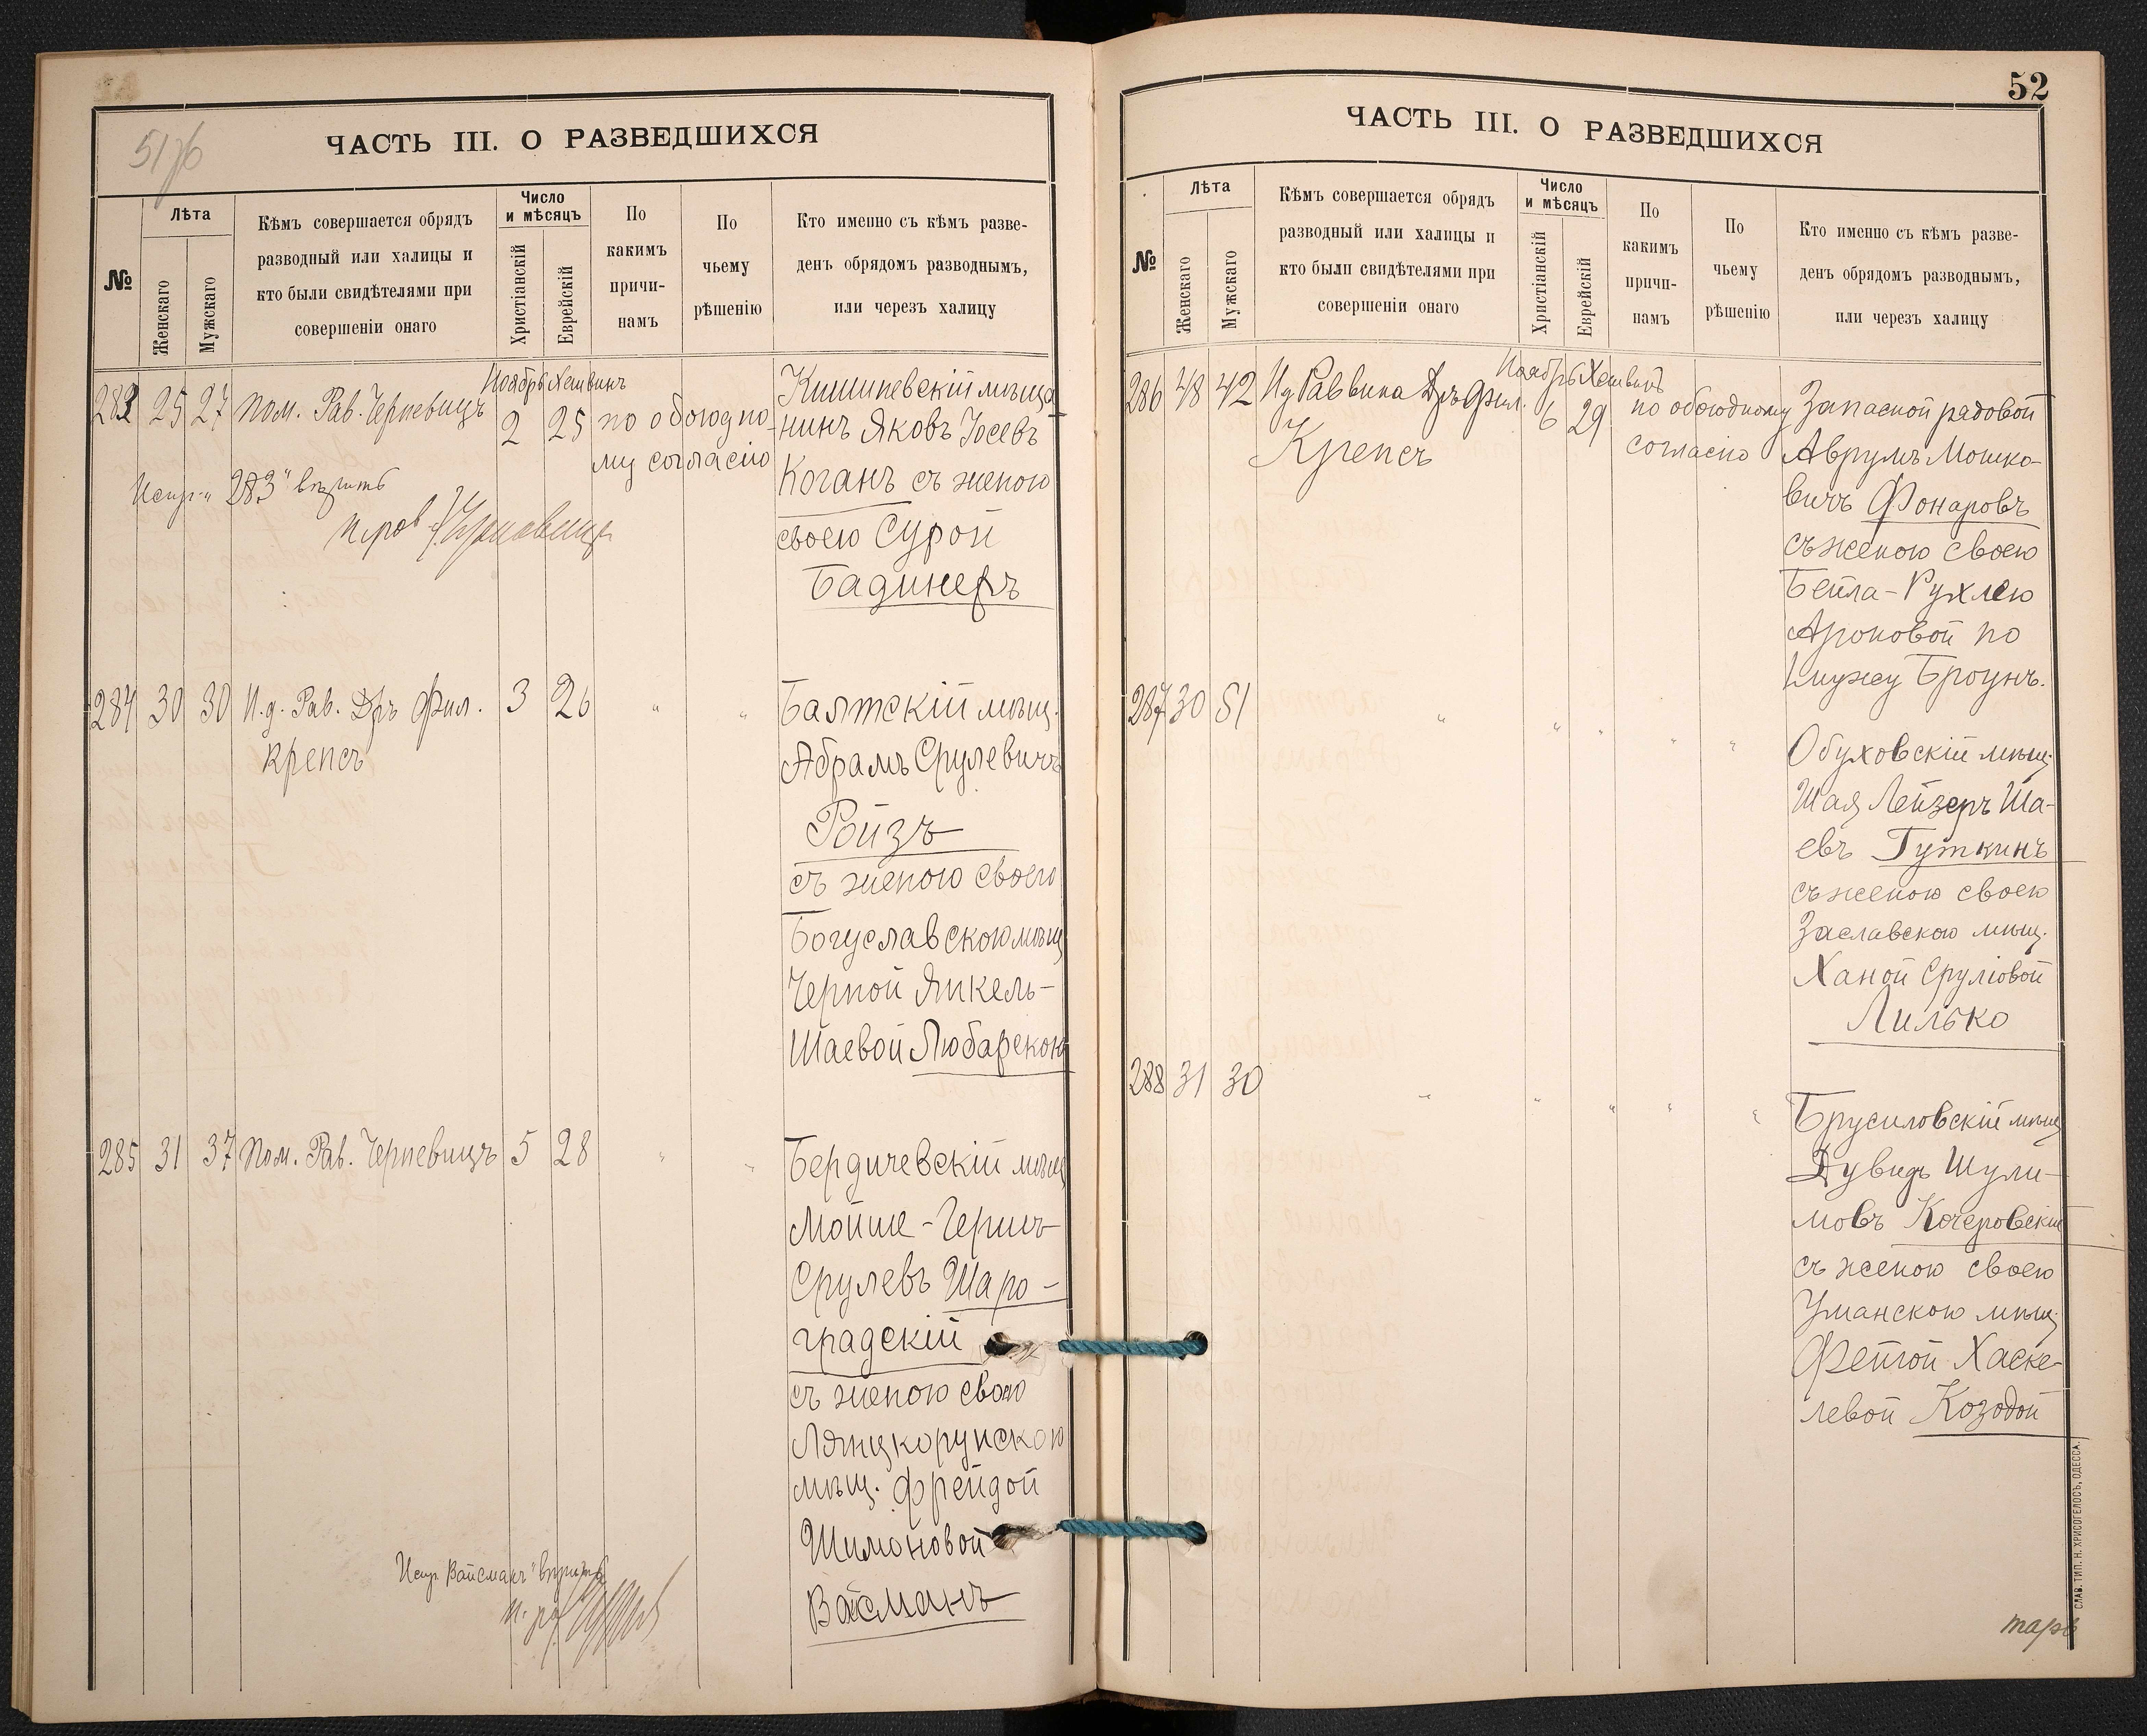 51 об
ЧАСТЬ III. О РАЗВЕДШИХСЯ
№
Лѣта
Женскаго
Мужскаго
Кѣмъ совершается обрядъ
разводный или халицы и
кто были свидѣтелями при
совершеніи онаго
Число
и мѣсяцъ
Христіанскій
Еврейскій
По
какимъ
причи-
намъ
По
чьему
рѣшенію
Кто именно съ кѣмъ разве-
денъ обрядомъ разводнымъ,
или черезъ халицу
283 25 27 Пом. Рав. Черневицъ
Ноябрь Хешвинъ
2 25 по обоюдно-
му согласію
Кишиневскій мѣща-
нинъ Яковъ Іосевъ
Коганъ съ женою
своею Сурой
Бадинеръ
"283" вѣрить
284 30 30 И.д. Рав. Дръ Фил.
Крепсъ
3 26 " "
Балтскій мѣщ.
Абрамъ Срулевичъ
Ройзъ
съ женою своею
Богуславскою мѣщ
Черной Янкель-
Шаевой Любарскою
285 31 37 Пом. Рав. Черневицъ 5 28 " "
Бердичевскій мѣщ
Мойше-Гершъ
Срулевъ Шаро-
градскій
съ женою свою
Лянцкорунскою
мѣщ. Фрейдой
Шимоновой
Вайсманъ
Испр. Вайсманъ" вѣрить
52
ЧАСТЬ III. О РАЗВЕДШИХСЯ
№
Лѣта
Женскаго
Мужскаго
Кѣмъ совершается обрядъ
разводный или халицы и
кто были свидѣтелями при
совершеніи онаго
Число
и мѣсяцъ
Христіанскій
Еврейскій
По
какимъ
причи-
намъ
По
чьему
рѣшенію
Кто именно съ кѣмъ разве-
денъ обрядомъ разводнымъ,
или черезъ халицу
286 48 42 Ид Раввина Дръ Фил.
Крепсъ
Ноябрь Хешвинъ
6 29
по обоюдному
согласію
Запасной рядовой
Аврумъ Мошко-
вичъ Фонаровъ
съ женою своею
Бейла-Рухлею
Ароновой по
мужу Броунъ.
287 30 51 " " " " "
Обуховскій мѣщ.
Шая Лейзеръ Ша-
евъ Гуткинъ
съ женою своею
Заславскою мѣщ.
Ханой Сруліовой
Лилько
288 31 30 " " " " "
Брусиловскій мѣщ
Дувидъ Шули-
мовъ Кочеровскій
съ женою своею
Уманскою мѣщ.
Фейгой Хаске-
левой Козодой
СЛАВ. ТИП. Н. ХРИСОГЕЛОСЪ, ОДЕССА.